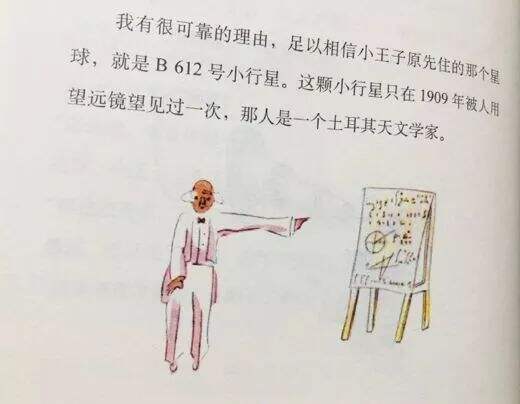 我有很可靠的理由，足以相信小王子原先住的那个星
球，就是 B 612 号小行星。这颗小行星只在 1909 年被人用
望远镜望见过一次，那人是一个土耳其天文学家。